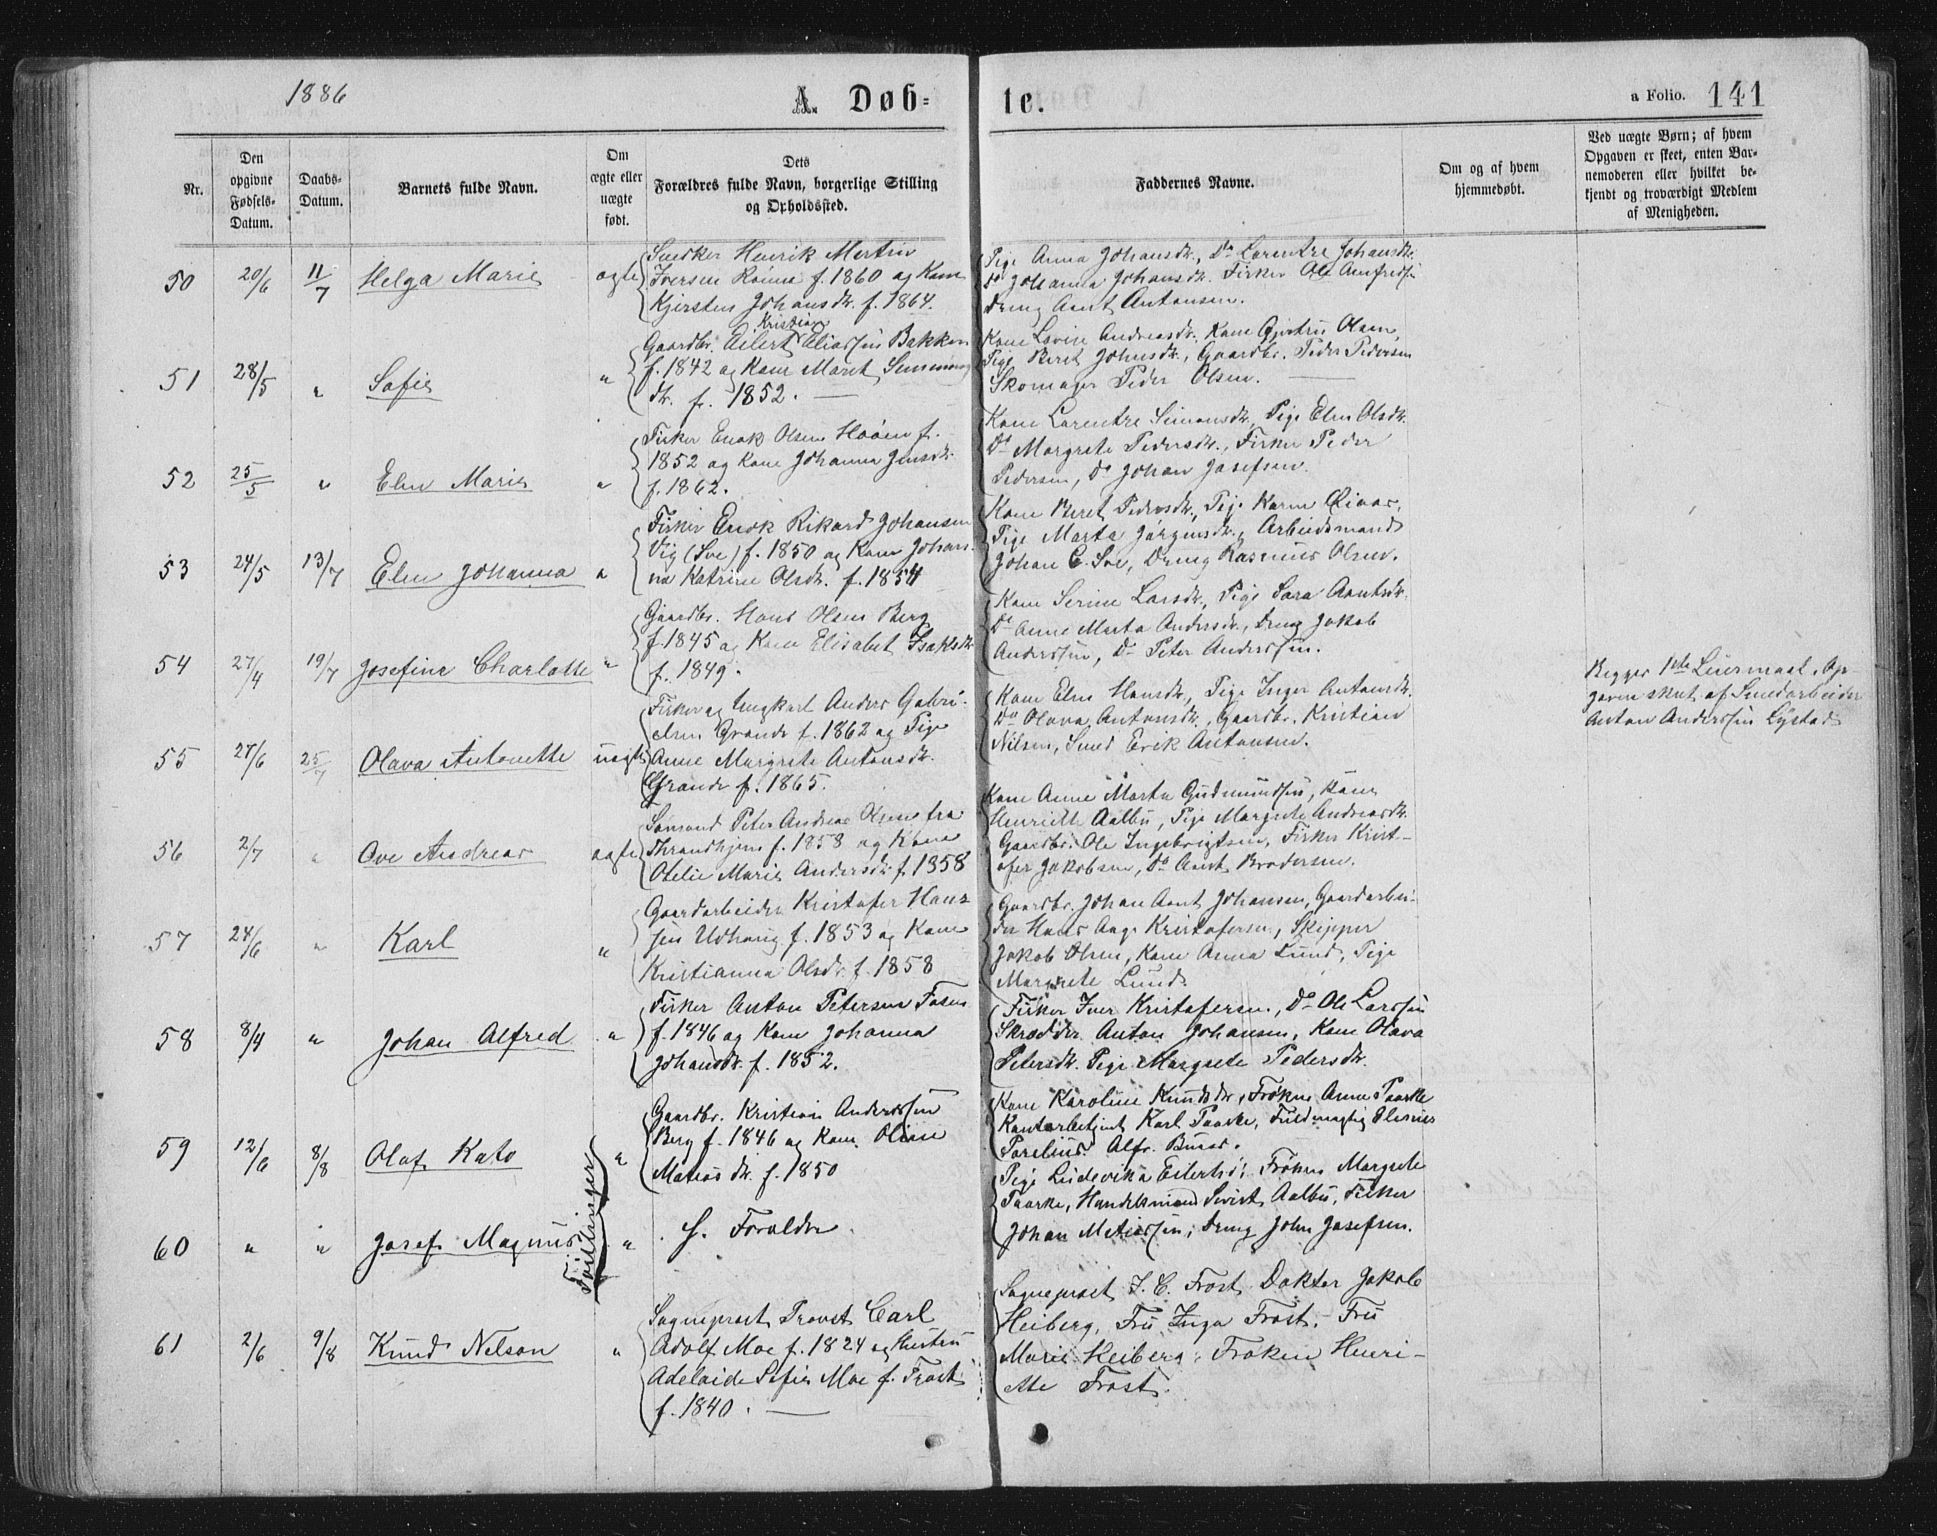 1886
A. Døb-
te.
a Folio. 141
Nr.
Den
opgivne
Fødsels-
Datum.
Daabs-
Datum.
Barnets fulde Navn.
Om
ægte eller
uægte
født.
Dets
Forældres fulde Navn, borgerlige Stilling
og Opholdssted.
Faddernes Navne.
Om og af hvem
hjemmedøbt.
Ved uægte Børn; af hvem
Opgaven er skeet, enten Bar-
nemoderen eller hvilket be-
kjendt og troværdigt Medlem
af Menigheden.
50 20/6 11/7 Helga Marie ægte
Snedker Henrik Martin
Iversen f. 1860 og Kone
Kjersten Johansdr. f. 1864.
Pige Anna Johansdr., Do Lorentze Johansdr.
Do Johanna Johansdr. Fisker Ole Arnfredsen
Dreng Arnt Antonsen.
51 28/5 " Sofie "
Kristian
Gaardbr. Eilert Eliassen Bakken
f. 1842 og Kone Maret Simonsdr.
f. 1852.
Kone Lovise Andreasdr. Kone Gjertru Olsen
Pige Beret Johnsdr., Gaardbr. Peder Pedersen
Skomager Peder Olsen.
52 25/5 " Elen Marie "
Fisker Enok Olsen f.
1852 og Kone Johanna Jensdr.
f. 1862.
Kone Lorentze Simonsdr., Pige Elen Olsdr.
Do Margrete Pedersdr., Fisker Peder
Pedersen, Do Johan Josefsen.
53 24/5 13/7 Elen Johanna "
Fisker Enok Rikard Johansen
Vig (Soe) f. 1850 og Kone Johan-
na Katrine Olsdr. f. 1854
Kone Beret Pedersdr., Pige Karen
Pige Marta Jørgensdr., Arbeidsmand
Johan E. Soe, Dreng Rasmus Olsen.
54 27/4 19/7 Josefine Charlotte "
Gaardbr. Hans Olsen Berg
f. 1845 og Kone Elisabet Isaksdr.
f. 1849.
Kone Serine Larsdr., Pige Sara Arntsdr.
Do Anne Marta Andersdr., Dreng Jakob
Anderssen, Do Peter Anderssen.
55 27/6 25/7 Olava Antonette uægte
Fisker og Ungkarl Anders Gabri-
elsen Grande f. 1862 og Pige
Anne Margrete Antonsdr.
Grande f. 1865.
Kone Elen Hansdr., Pige Inger Antonsdr.
Do Olava Antonsdr., Gaardbr. Kristian
Nilsen, Smed Erik Antonsen.
Begges 1ste Leiermaal. Op-
gaven skeet af
Anton Anderssen Lystad
56 2/7 " Ove Andreas ægte
Sømand Peter Andreas Olsen fra
Throndhjem f. 1858 og Kone
Otelie Marie Andersdr. f. 1858
Kone Anne Marta Gudmundsen, Kone
Henriette Aalbu, Pige Margrete Andreasdr.
Gaardbr. Ole Ingebrigtsen, Fisker Krist-
ofer Jakobsen, Do Arnt Brodersen.
57 24/6 " Karl "
Gaardarbeider Kristofer Hans-
sen Udhaug f. 1853 og Kone
Kristianna Olsdr. f. 1858
Gaardbr. Johan Arnt Johansen, Gaardarbei-
der Hans Aage Kristofersen, Skipper
Jakob Olsen, Kone Anna Lund, Pige
Margrete Lund.
58 8/4 " Johan Alfred "
Fisker Anton Petersen Fosen
f. 1846 og Kone Johanna
Johansdr. f. 1852.
Fisker Iver Kristofersen, Do Ole Larssen
Skrædder Anton Johansen, Kone Olava
Petersdr. Pige Margrete Pedersdr.
59 12/6 8/8 Olaf Kato "
Gaardbr. Kristian Anderssen
Berg f. 1846 og Kone Oline
Matiasdr. f. 1850
Kone Karoline Knudsdr., Frøken Anne Paarke
Karl Paarke, Fuldmægtig
Parelius. Alfr.
Tvillinger
60 " " Josef Magnus "
S. Forældre
Pige Ludevika, Frøken Margrete
Paarke, Handelsmand Sivert Aalbu, Fisker
Johan Matiassen, Dreng John Josefsen.
61 2/6 9/8 Knud Nelson "
Sogneprest Provst Carl
Adolf Moe f. 1824 og Hustru
Adelaide Sofie Moe f. Frost
f. 1840.
Sogneprest J. C. Frost, Doktor Jakob
Heiberg, Fru Inga Frost, Fru
Marie Heiberg, Frøken Henri-
ette Frost.